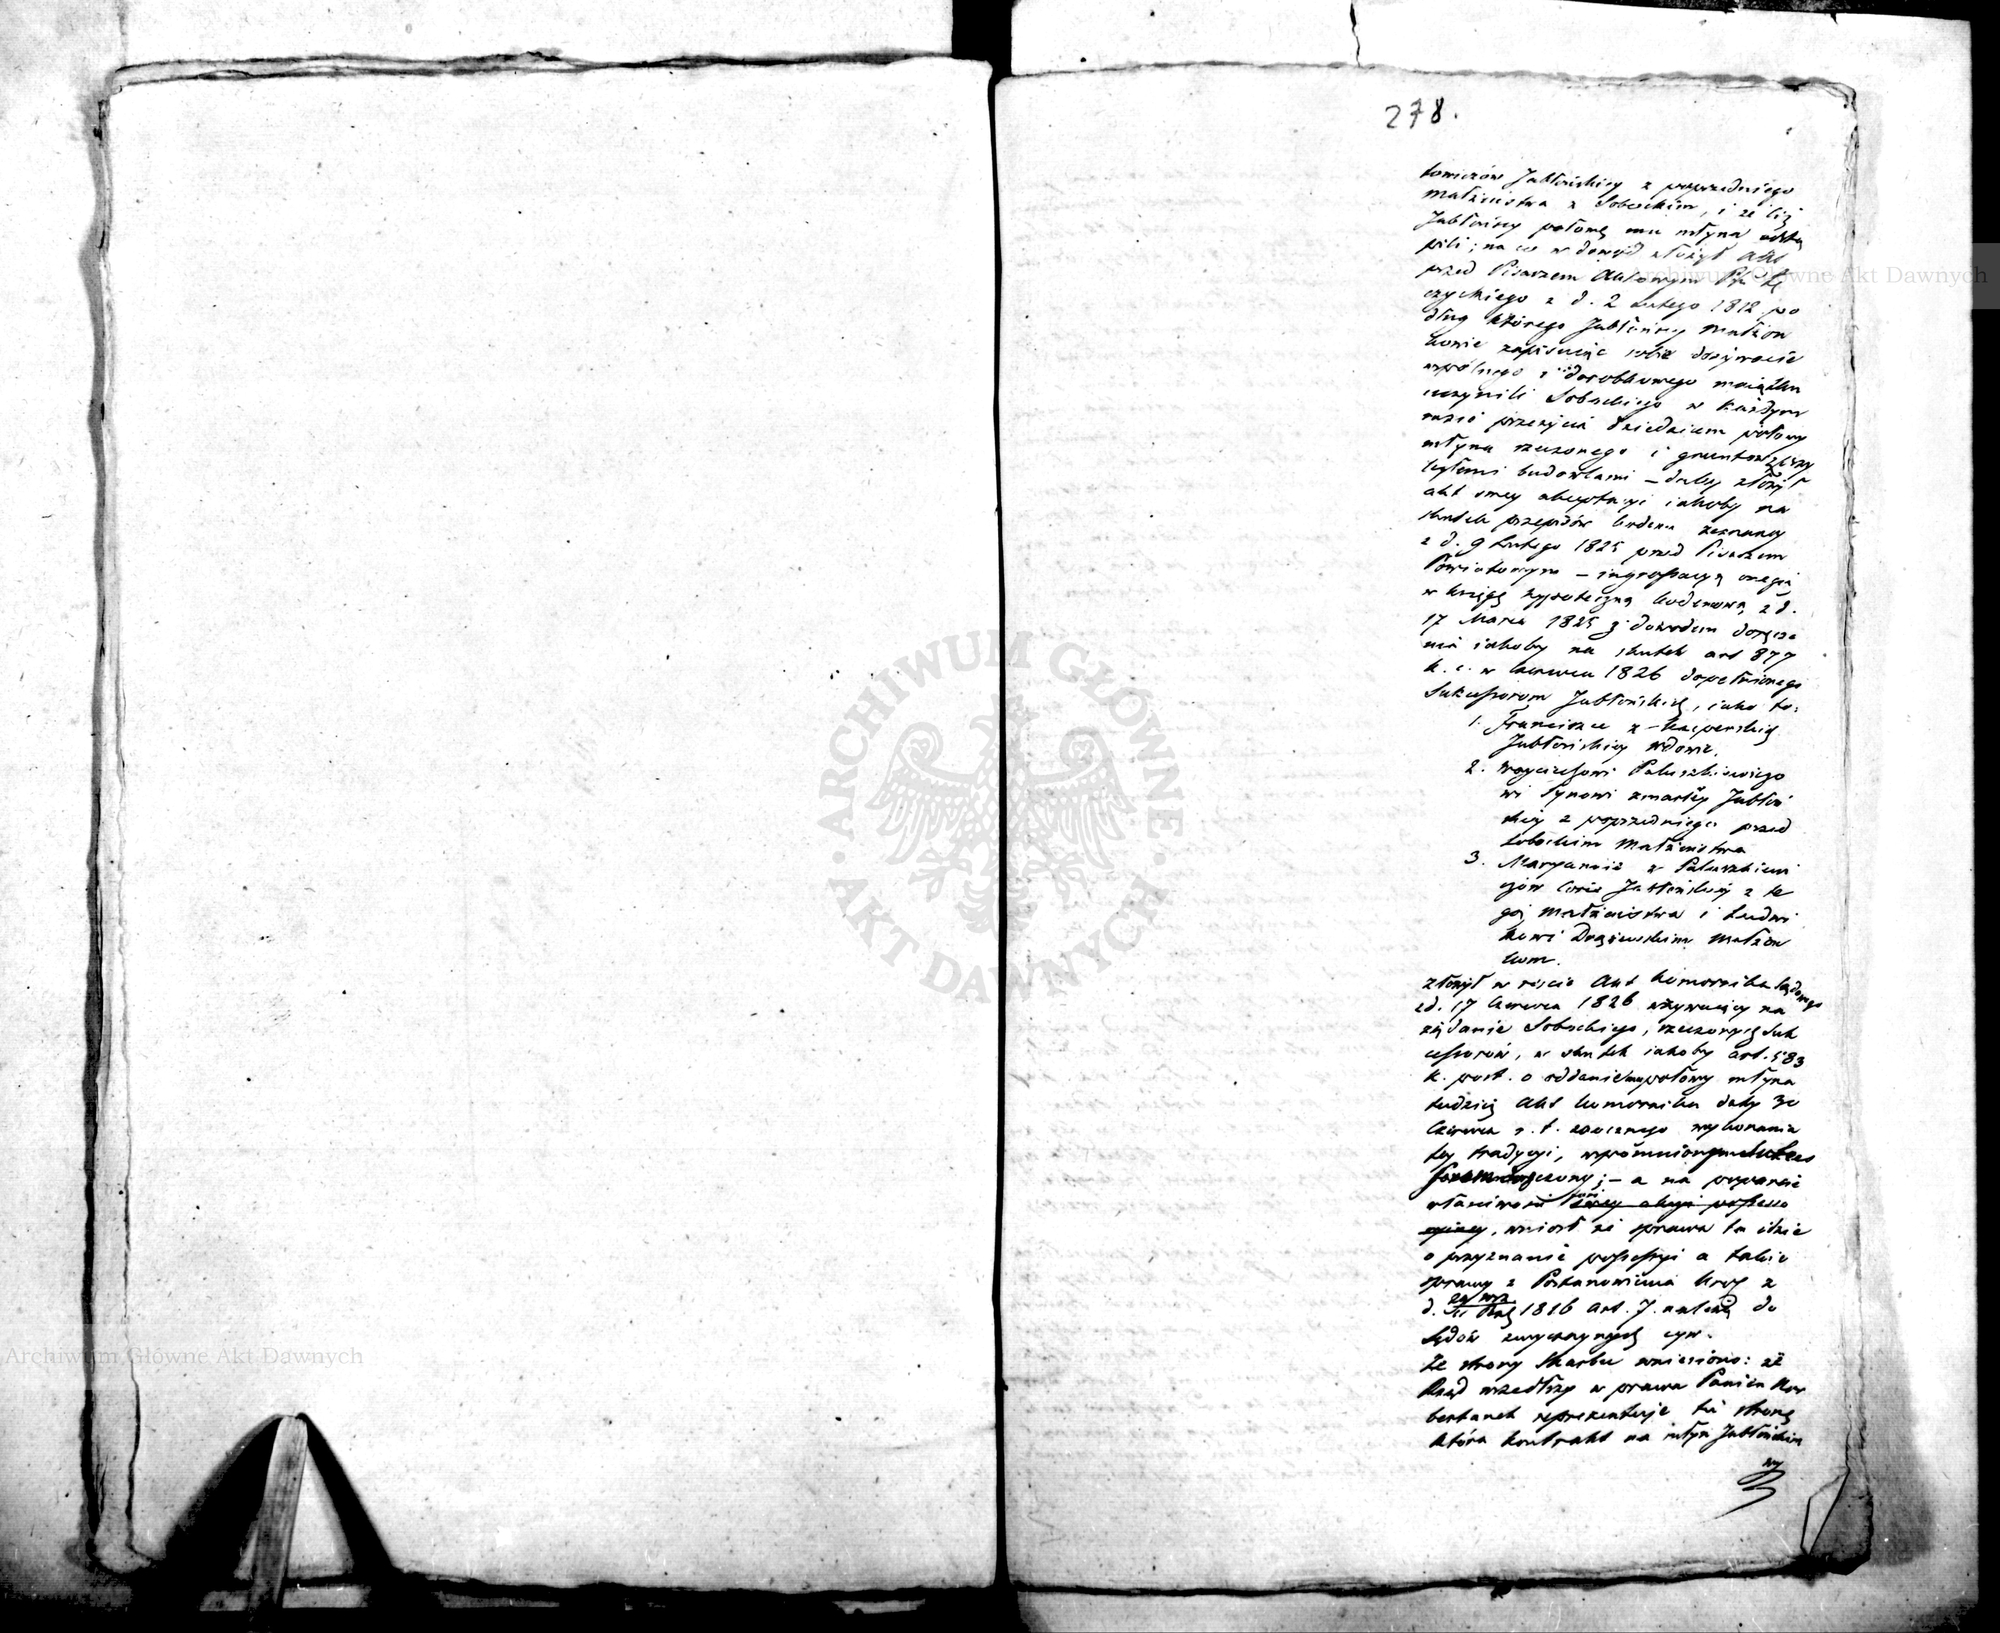 278.
towiczów Jabłońskiey z poprzedniego
małżeństwa z Sobockim, i że ciż
Jabłońscy połowę mu młyna odstą
pili; na co w dowód złożył Akt
przed Pisarzem Aktowym Ptu Łę
czyckiego z d. 2 Lutego 1812 po
dług którego Jabłońscy Małżon
kowie zapisuiąc sobie dożywocie
wspólnego i dorobkowego maiątku
uczynili Sobockiego w każdym
razie przeżycia dziedzicem połowy
młyna rzeczonego i gruntów z przy
ległemi budowlami – daley złożył
akt owey akceptacyi iakoby na
skutek przepisów kodexu zeznany
z d. 9 Lutego 1825 przed Pisarzem
Powiatowym – ingrossacyą onegoż
w księgę hypoteczną kodexową z d.
17 Marca 1825 z dowodem doręcze
nia iakoby na skutek art 877
k. c. w czerwcu 1826 dopełnionego
Sukcessorom Jabłońskich, iako to:
1. Franciszce z Kacperskich
Jabłońskiey wdowie.
2. Woyciechowi Paluszkiewiczo
wi Synowi zmarłey Jabłoń
skiey z poprzedniego przed
Sobockim Małżeństwa
3. Maryannie z Paluszkiewi
czów Córce Jabłońskiey z te
goż małżeństwa i Ludwi
kowi Małżon
kom.
złożył w reście Akt komornika Sądowego
z d. 17 Czerwca 1826 wzywaiący na
żądanie Sobockiego, rzeczonych Suk
cessorów, w skutek iakoby art. 583
k. post. o oddanie mu połowy młyna
tudzież Akt komornika daty 30
Czerwca r. t. zaocznego wykonania
tey tradycyi, wspomnionym Sukces
sorom doręczony; – a na poparcie
właściwości
, wniosł że sprawa ta idzie
o przyznanie possessyi a takie
sprawy z Postanowienia Król z
d. 1816 art. 7. należą do
Sądów zwyczaynych cyw.
Ze strony Skarbu wniesiono: że
Rząd wszedłszy w prawa Panien Nor
bertanek reprezentuje tę stronę
która kontrakt na młyn Jabłońskim